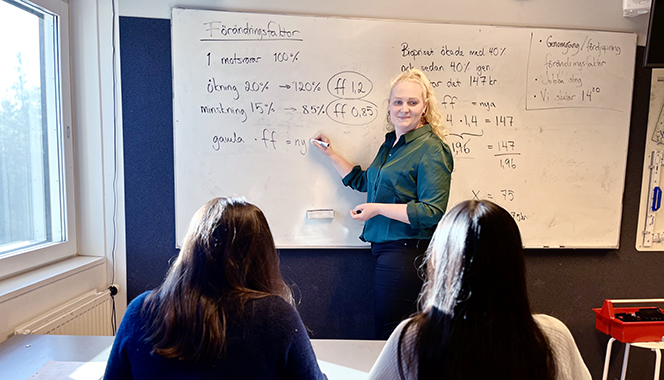 Förändringsfaktor
1 motsvarar 100%
ökning 20% → 120% ff 1,2
minskning 15% → 85% ff 0,85
gamla · ff = ny
Biopriset ökade med 40%
och sedan 40% igen
det 147 kr
ff = nya
· 1,4 = 147
1,96 = 147
1,96
X = 75
• Genomgång / fördjupning
förändringsfaktor
• Jobba
• Vi slutar 14